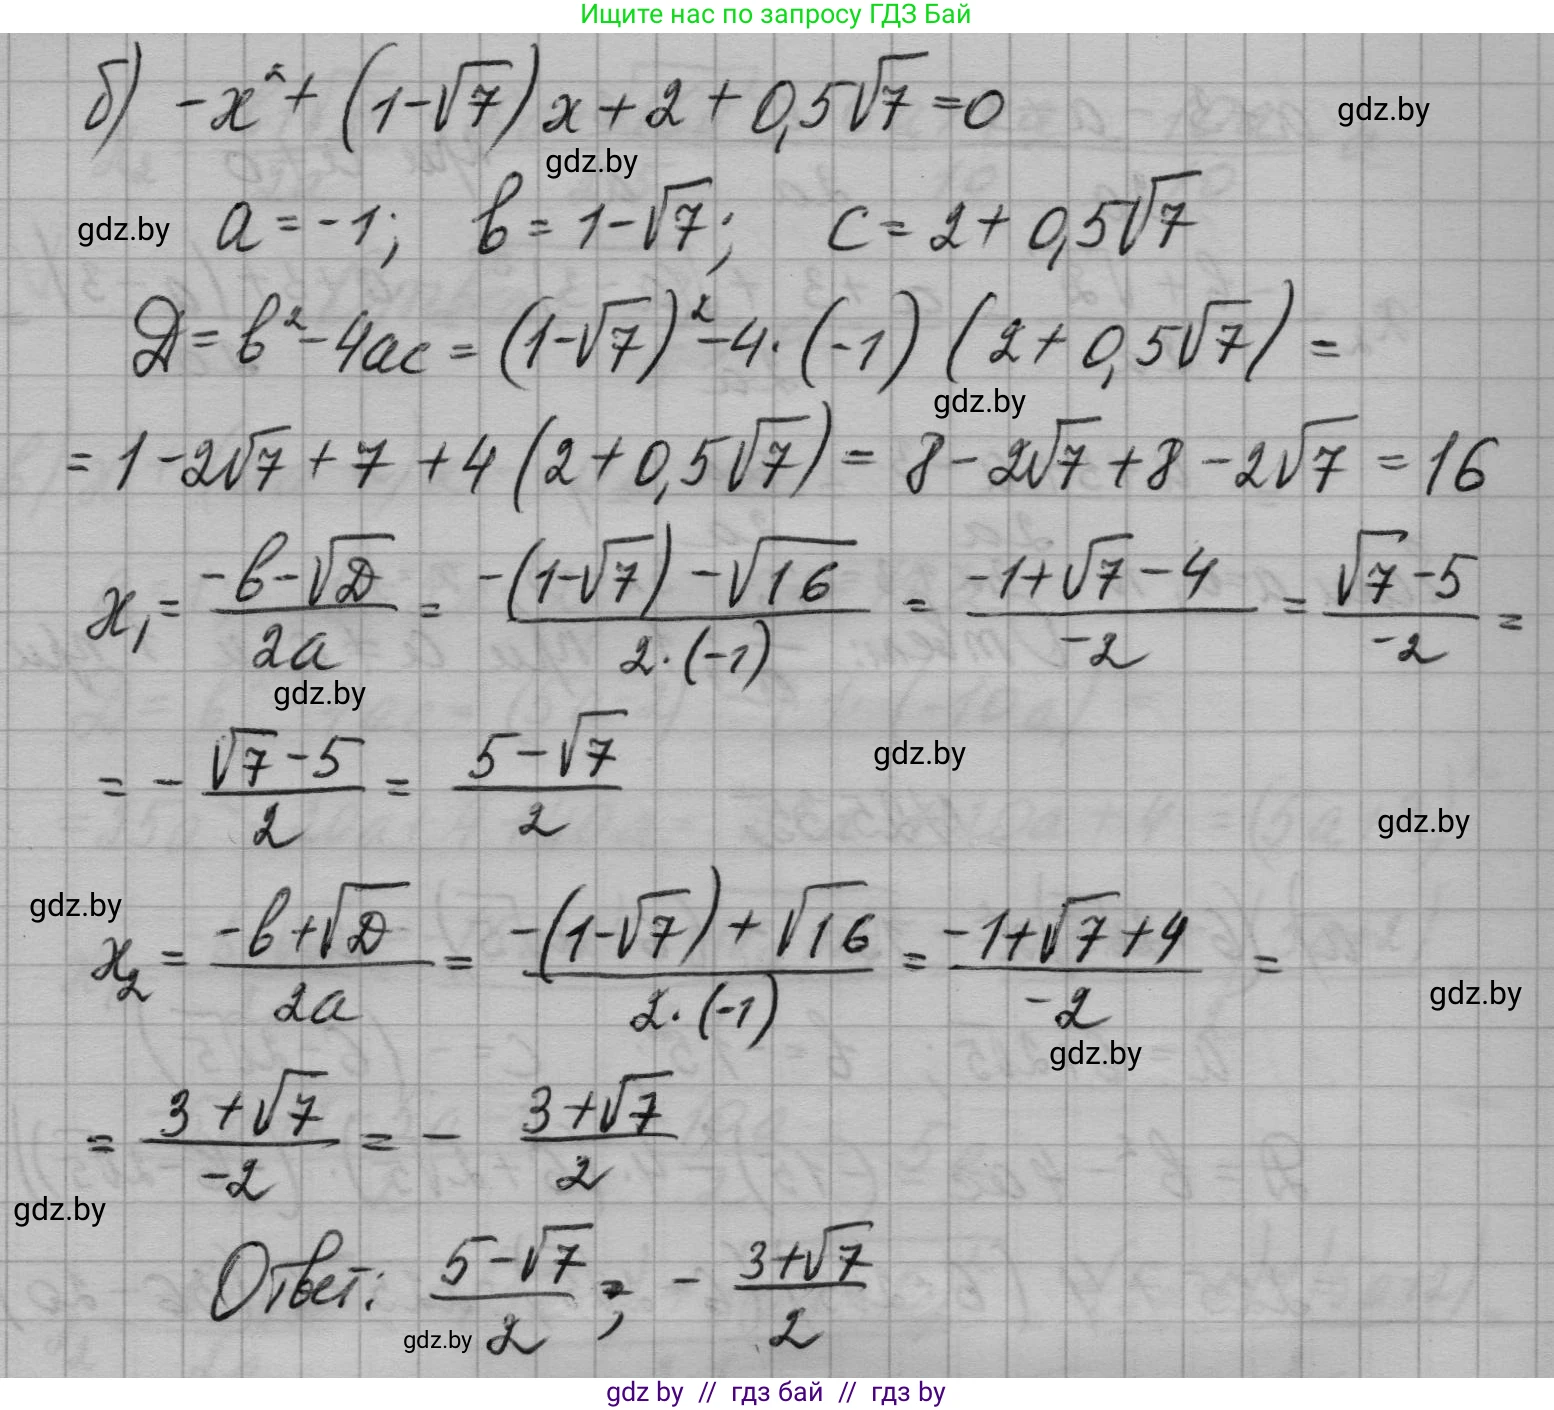 Ищите нас по запросу ГДЗ Бай
б) -x² + (1-√7)x + 2 + 0,5√7 = 0
gdz.by
gdz.by
gdz.by a = -1; b = 1-√7; c = 2 + 0,5√7
D = b² - 4ac = (1-√7)² - 4·(-1)(2 + 0,5√7) =
gdz.by
= 1 - 2√7 + 7 + 4(2 + 0,5√7) = 8 - 2√7 + 8 - 2√7 = 16
x₁ = (-b-√D)/(2a) = (-(1-√7)-√16)/(2·(-1)) = (-1+√7-4)/(-2) = (√7-5)/(-2) =
gdz.by
= -(√7-5)/2 = (5-√7)/2
gdz.by
gdz.by
gdz.by
x₂ = (-b+√D)/(2a) = (-(1-√7)+√16)/(2·(-1)) = (-1+√7+4)/(-2) =
gdz.by
gdz.by
= (3+√7)/(-2) = -(3+√7)/2
gdz.by
Ответ: (5-√7)/2; -(3+√7)/2
gdz.by
gdz by // гдз бай // гдз by